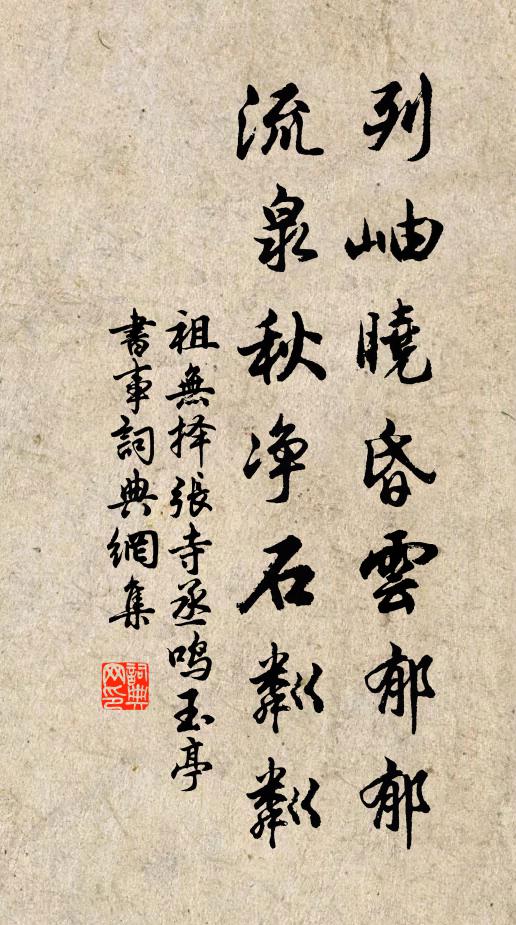 列岫曉昏雲郁郁
流泉秋净石粼粼
祖無择張寺丞鸣玉亭
書事詞典網集
詞典
网印